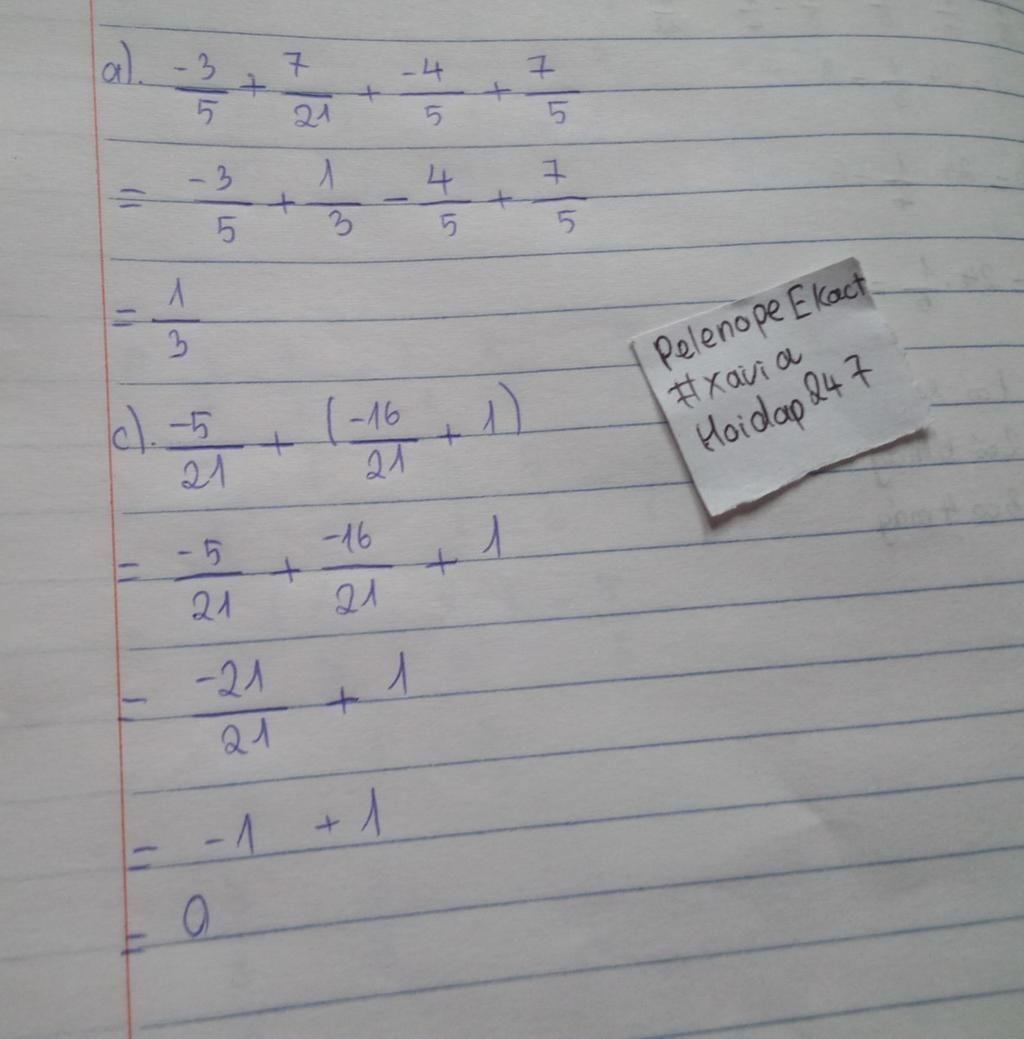 a). -3/5 + 7/21 + -4/5 + 7/5
= -3/5 + 1/3 - 4/5 + 7/5
= 1/3
Pelenope Ekact
#xavia
Hoidap247
c). -5/21 + (-16/21 + 1)
= -5/21 + -16/21 + 1
= -21/21 + 1
= -1 + 1
= 0